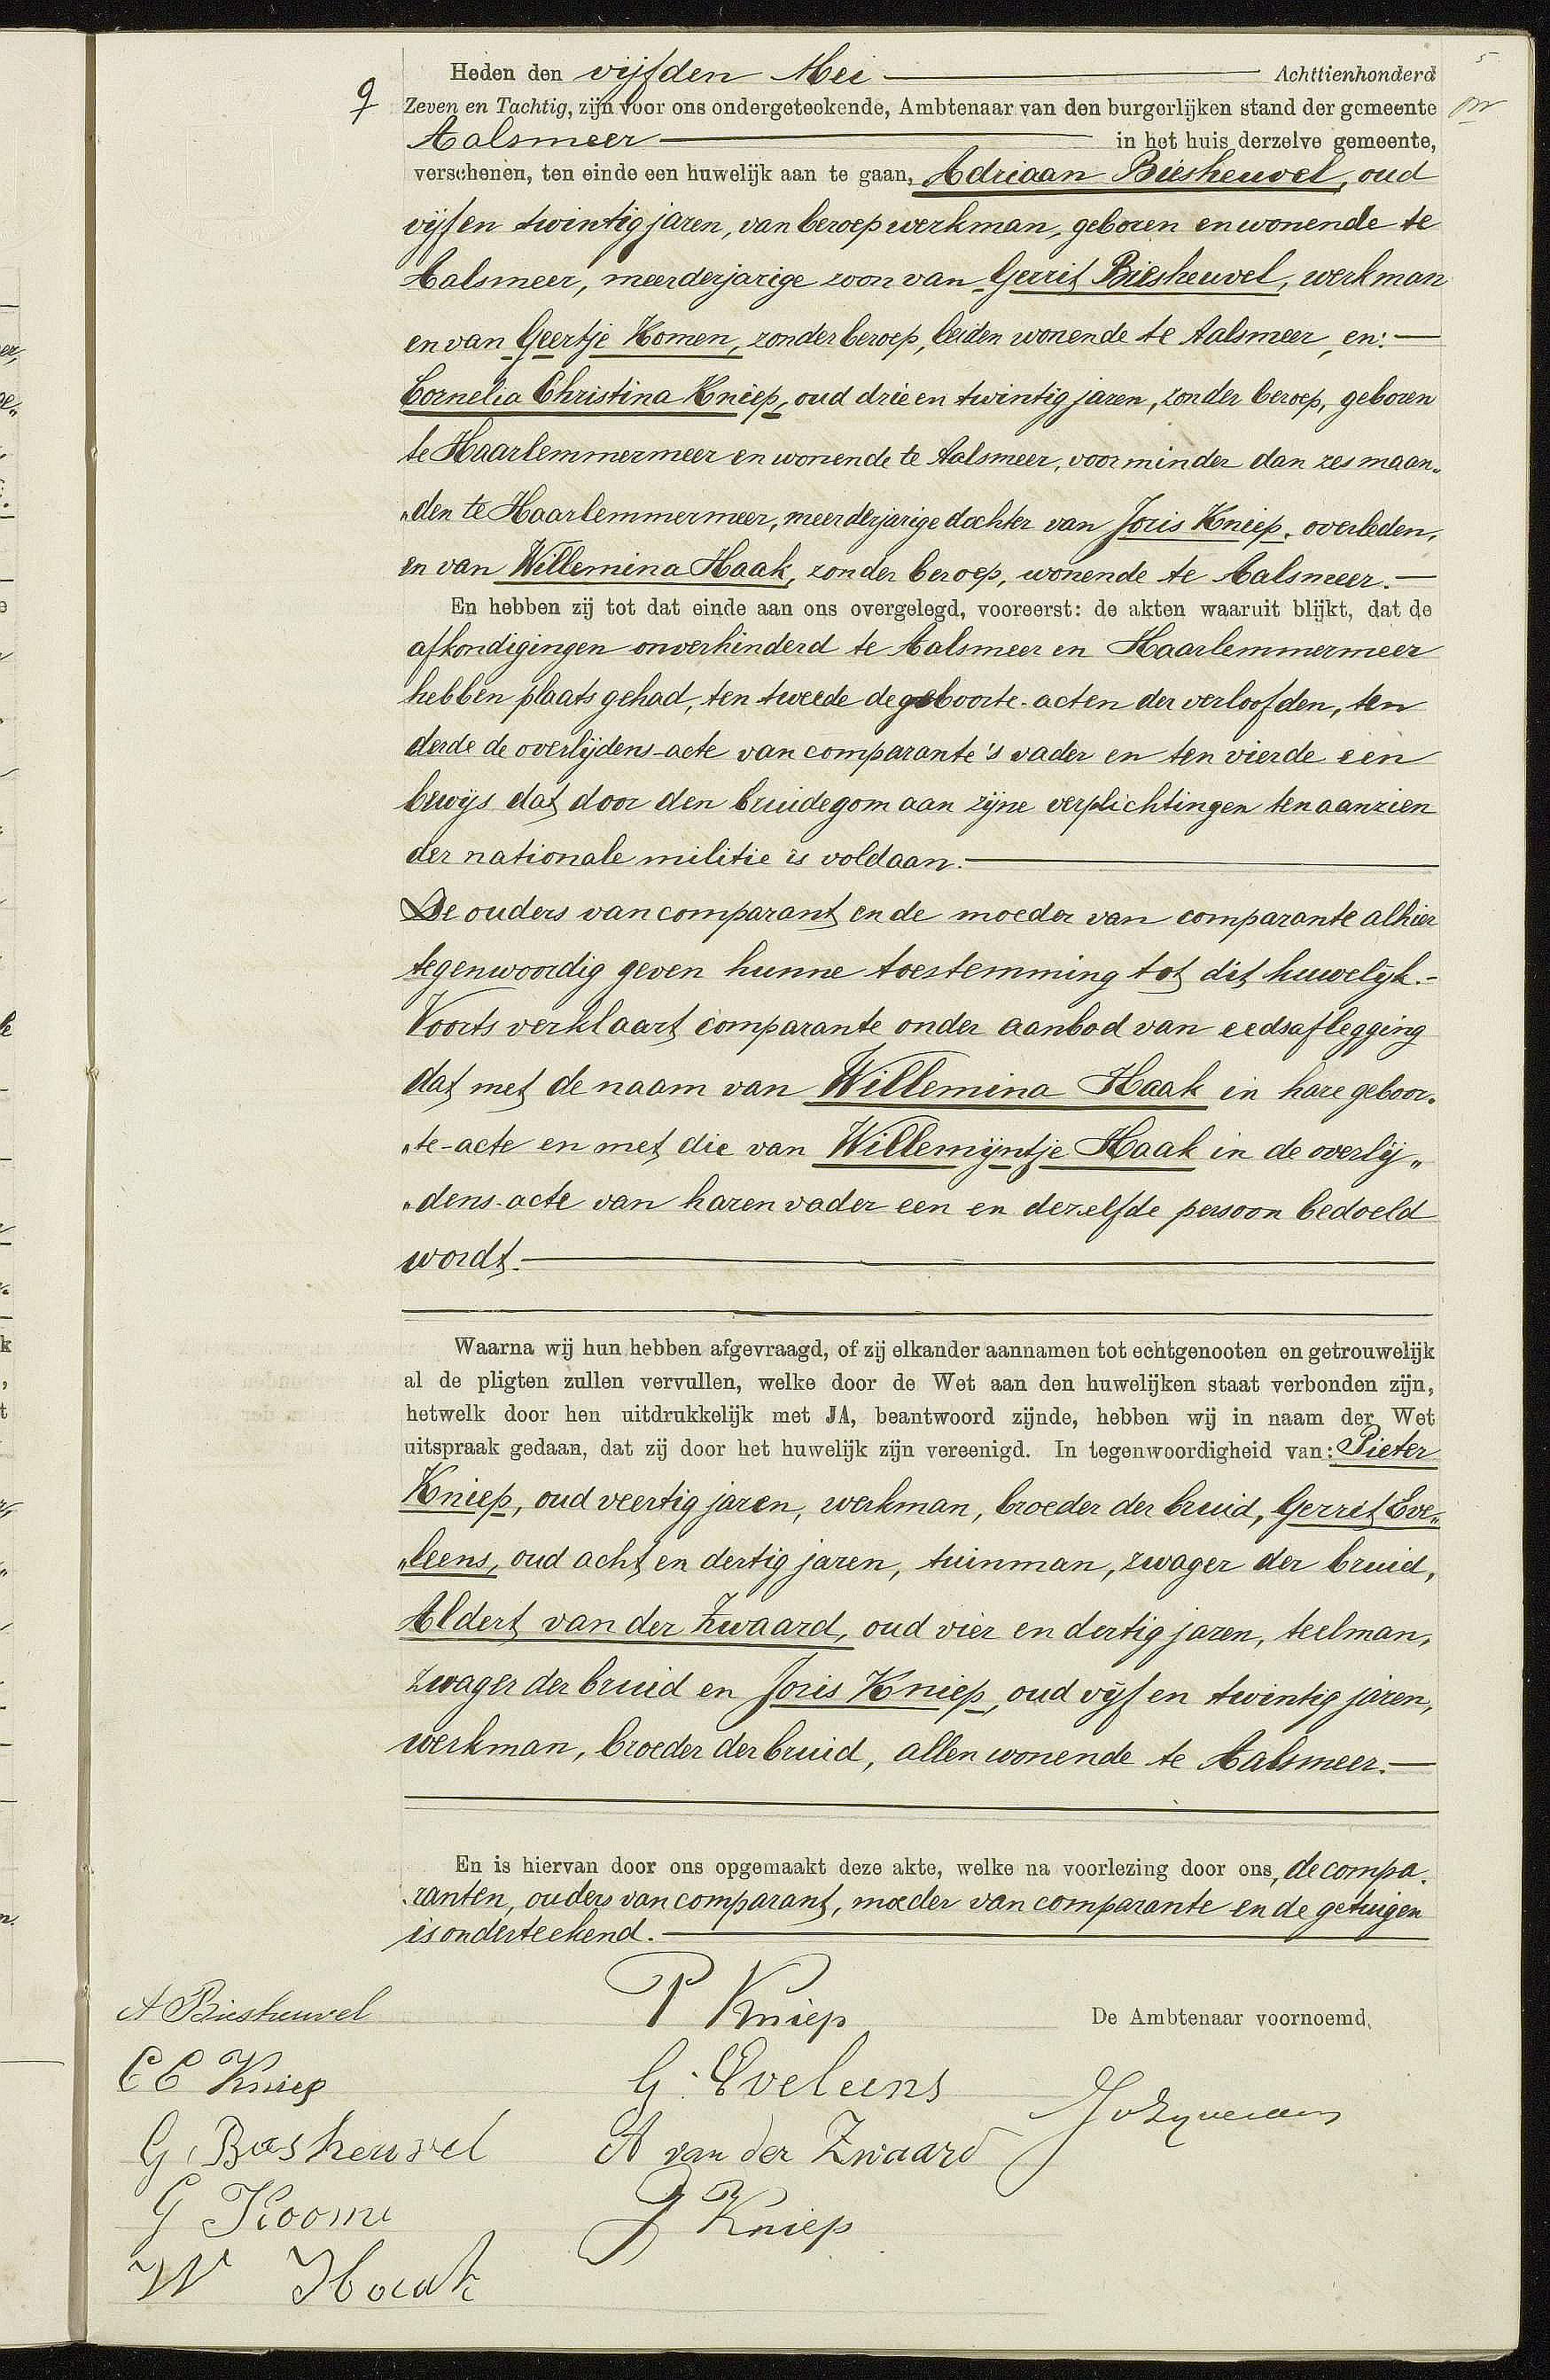 5
Heden den vijfden Mei Achttienhonderd
9 Zeven en Tachtig, zijn voor ons ondergeteekende, Ambtenaar van den burgerlijken stand der gemeente
Aalsmeer in het huis derzelve gemeente,
verschenen, ten einde een huwelijk aan te gaan, Adriaan Biesheuvel, oud
vijf en twintig jaren, van beroep werkman, geboren en wonende te
Aalsmeer, meerderjarige zoon van Gerrit Biesheuvel, werkman
en van Geertje Komen, zonder beroep, beiden wonende te Aalsmeer, en: —
Cornelia Christina Kniep, oud drie en twintig jaren, zonder beroep, geboren
te Haarlemmermeer en wonende te Aalsmeer, voor minder dan zes maan„
„den te Haarlemmermeer, meerderjarige dochter van Joris Kniep, overleden,
en van Willemina Haak, zonder beroep, wonende te Aalsmeer. —
En hebben zij tot dat einde aan ons overgelegd, vooreerst: de akten waaruit blijkt, dat de
afkondigingen onverhinderd te Aalsmeer en Haarlemmermeer
hebben plaats gehad, ten tweede de geboorte-acten der verloofden, ten
derde de overlijdens-acte van comparante's vader en ten vierde een
bewijs dat door den bruidegom aan zijne verplichtingen ten aanzien
der nationale militie is voldaan. —
De ouders van comparant en de moeder van comparante alhier
tegenwoordig geven hunne toestemming tot dit huwelijk. -
Voorts verklaart comparante onder aanbod van eedsaflegging
dat met de naam van Willemina Haak in hare geboor„
„te-acte en met die van Willemijntje Haak in de overlij„
„dens-acte van haren vader een en dezelfde persoon bedoeld
wordt. —
Waarna wij hun hebben afgevraagd, of zij elkander aannamen tot echtgenooten en getrouwelijk
al de pligten zullen vervullen, welke door de Wet aan den huwelijken staat verbonden zijn,
hetwelk door hen uitdrukkelijk met JA, beantwoord zijnde, hebben wij in naam der Wet
uitspraak gedaan, dat zij door het huwelijk zijn vereenigd. In tegenwoordigheid van: Pieter
Kniep, oud veertig jaren, werkman, broeder der bruid, Gerrit Eve„
„leens, oud acht en dertig jaren, tuinman, zwager der bruid,
Aldert van der Zwaard, oud vier en dertig jaren, teelman,
zwager der bruid en Joris Kniep, oud vijf en twintig jaren,
werkman, broeder der bruid, allen wonende te Aalsmeer. —
En is hiervan door ons opgemaakt deze akte, welke na voorlezing door ons, de compa„
„ranten, ouders van comparant, moeder van comparante en de getuigen
is onderteekend. —
A Biesheuvel P Kniep De Ambtenaar voornoemd,
C C Kniep G. Eveleens
G. Biesheuvel A van der Zwaard
G Koome J Kniep
W Haak